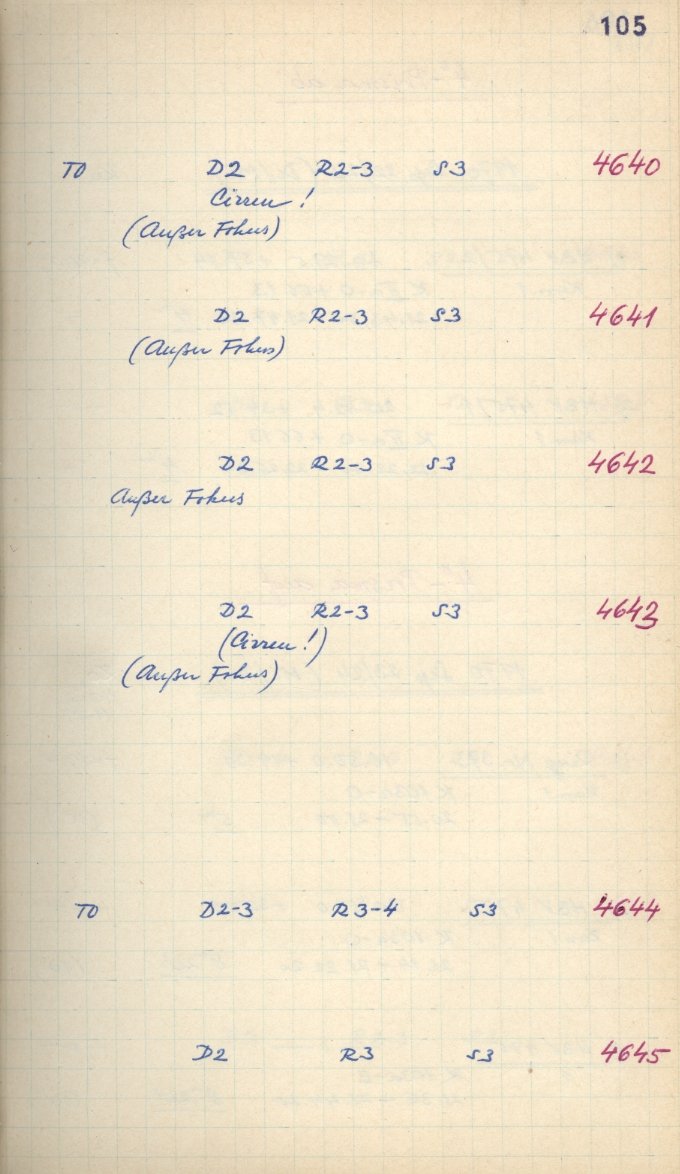 105
TO D2 R2-3 S3 4640
Cirren!
(Außer Fokus)
D2 R2-3 S3 4641
(Außer Fokus)
D2 R2-3 S3 4642
Außer Fokus
D2 R2-3 S3 4643
(Cirren!)
(Außer Fokus)
TO D2-3 R3-4 S3 4644
D2 R3 S3 4645